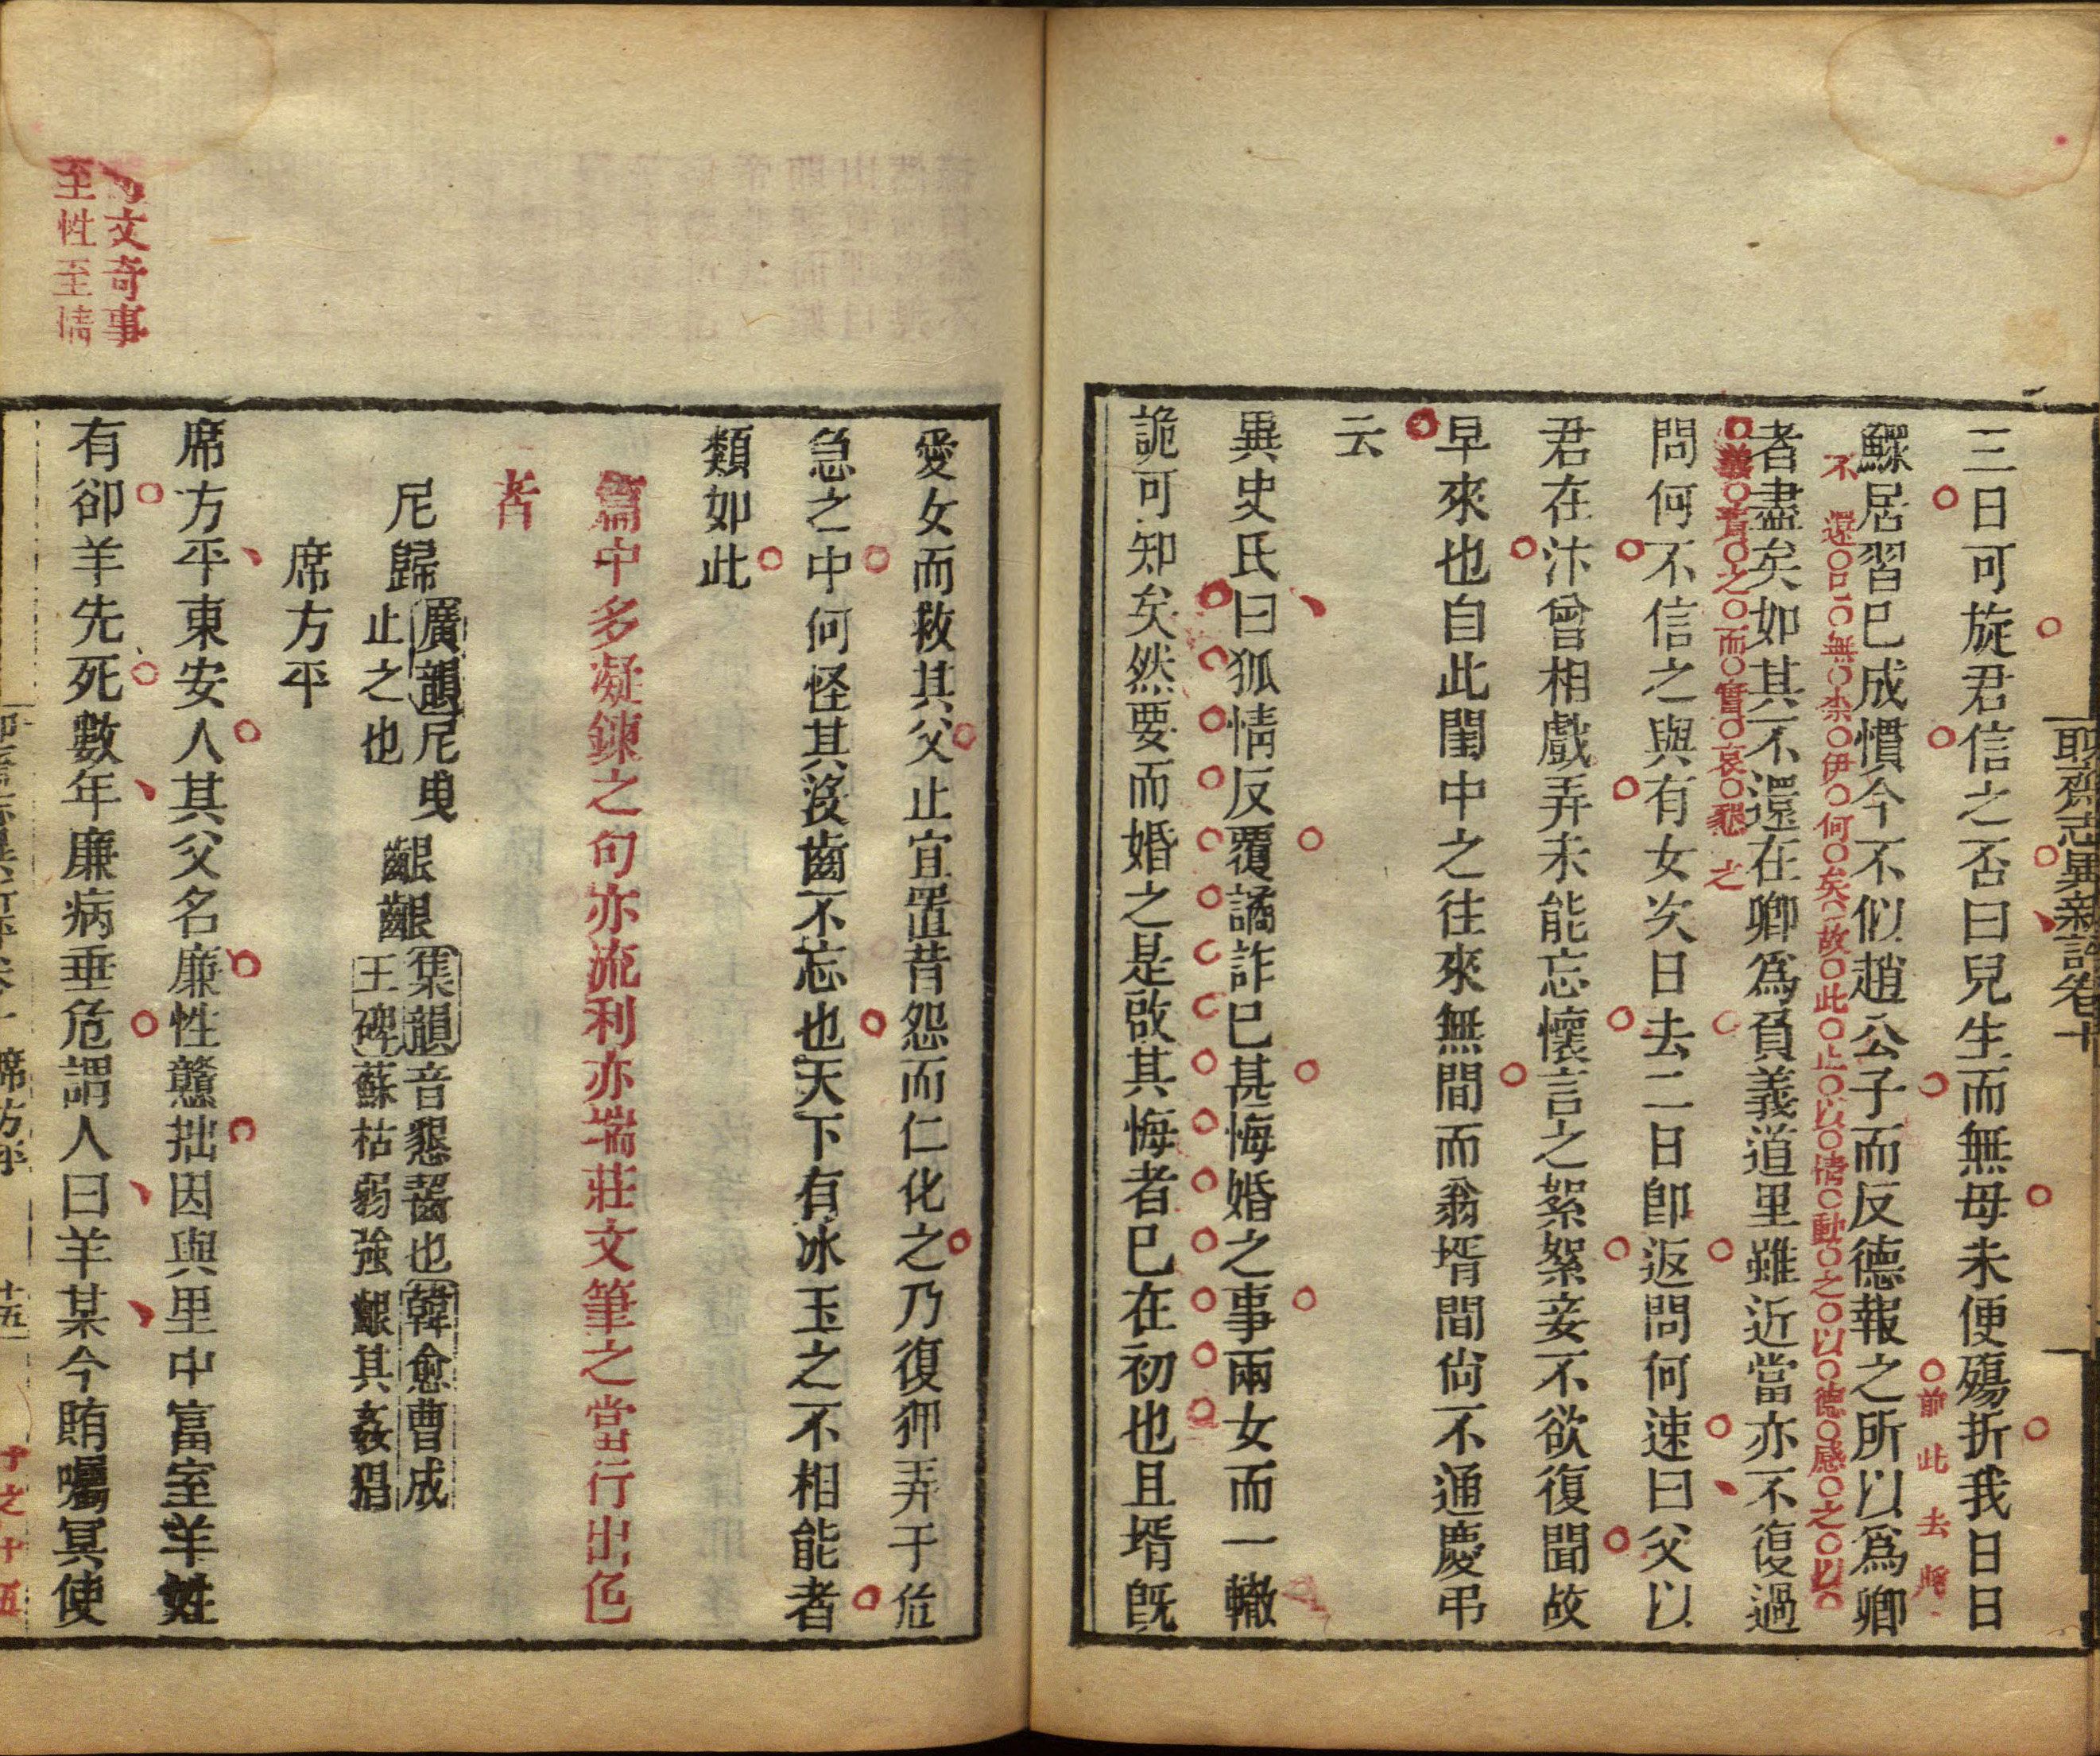 聊齋志異新評卷十
三日可旋君信之否曰兒生而無母未便殤折我日日
前此去將
鰥居習已成慣今不似趙公子而反德報之所以爲卿
不還只一無柰伊何矣故此止以情動之以德感之以
者盡矣如其不還在卿爲負義道里雖近當亦不復過
義責之而奮哀懇之
問何不信之與有女次日去二日即返問何速曰父以
君在汴曾相戲弄未能忘懷言之絮絮妾不欲復聞故
早來也自此閨中之往來無間而翁壻間尙不通慶弔
云
異史氏曰狐情反覆譎詐已甚悔婚之事兩女而一轍
詭可知矣然要而婚之是啟其悔者已在初也且壻旣
愛女而救其父止宜置昔怨而仁化之乃復狎弄于危
急之中何怪其沒齒不忘也天下有冰玉之不相能者
類如此
篇中多凝鍊之句亦流利亦端莊文筆之當行出色
者
尼歸
廣韻尼曳
止之也
齦齦
集韻音懇齧也韓愈曹成
王碑蘇枯弱強齦其姦猖
席方平
文奇事
至性至情
席方平東安人其父名廉性戇拙因與里中富室羊姓
有郤羊先死數年廉病垂危謂人曰羊某今賄囑冥使
席方平
十五
十之十五